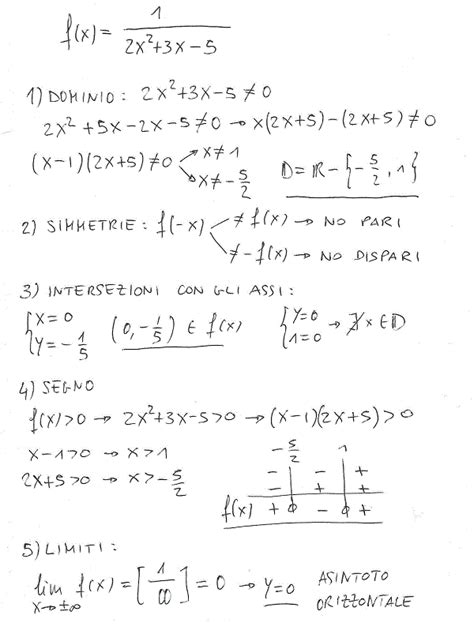 f(x) = 1/(2x²+3x-5)
1) DOMINIO: 2x²+3x-5≠0
2x²+5x-2x-5≠0 → x(2x+5)-(2x+5)≠0
(x-1)(2x+5)≠0 x≠1 x≠-5/2 D=R-{-5/2, 1}
2) SIMMETRIE: f(-x) ≠ f(x) → NO PARI
≠ -f(x) → NO DISPARI
3) INTERSEZIONI CON GLI ASSI:
{x=0 y=-1/5 (0, -1/5) ∈ f(x) {y=0 1=0 → ∄ x ∈ D
4) SEGNO
f(x)>0 → 2x²+3x-5>0 → (x-1)(2x+5)>0
x-1>0 → x>1
2x+5>0 → x>-5/2
-5/2 1
- - +
- + +
f(x) + ∅ - ∅ +
5) LIMITI:
lim x→±∞ f(x) = [1/∞] = 0 → y=0 ASINTOTO ORIZZONTALE